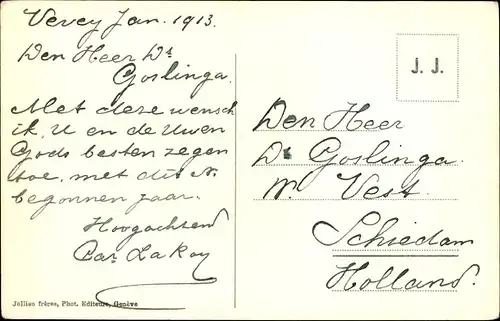 Vevey Jan. 1913.
Den Heer Ds
Goslinga.
Met deze wensch
ik U en de Uwen
Gods besten zegen
toe, met dit N.
begonnen jaar.
Hoogachtend
J. J.
Den Heer
Ds Goslinga.
W. Vest.
Schiedam
Holland.
Jullien frères, Phot. Editeurs, Genève